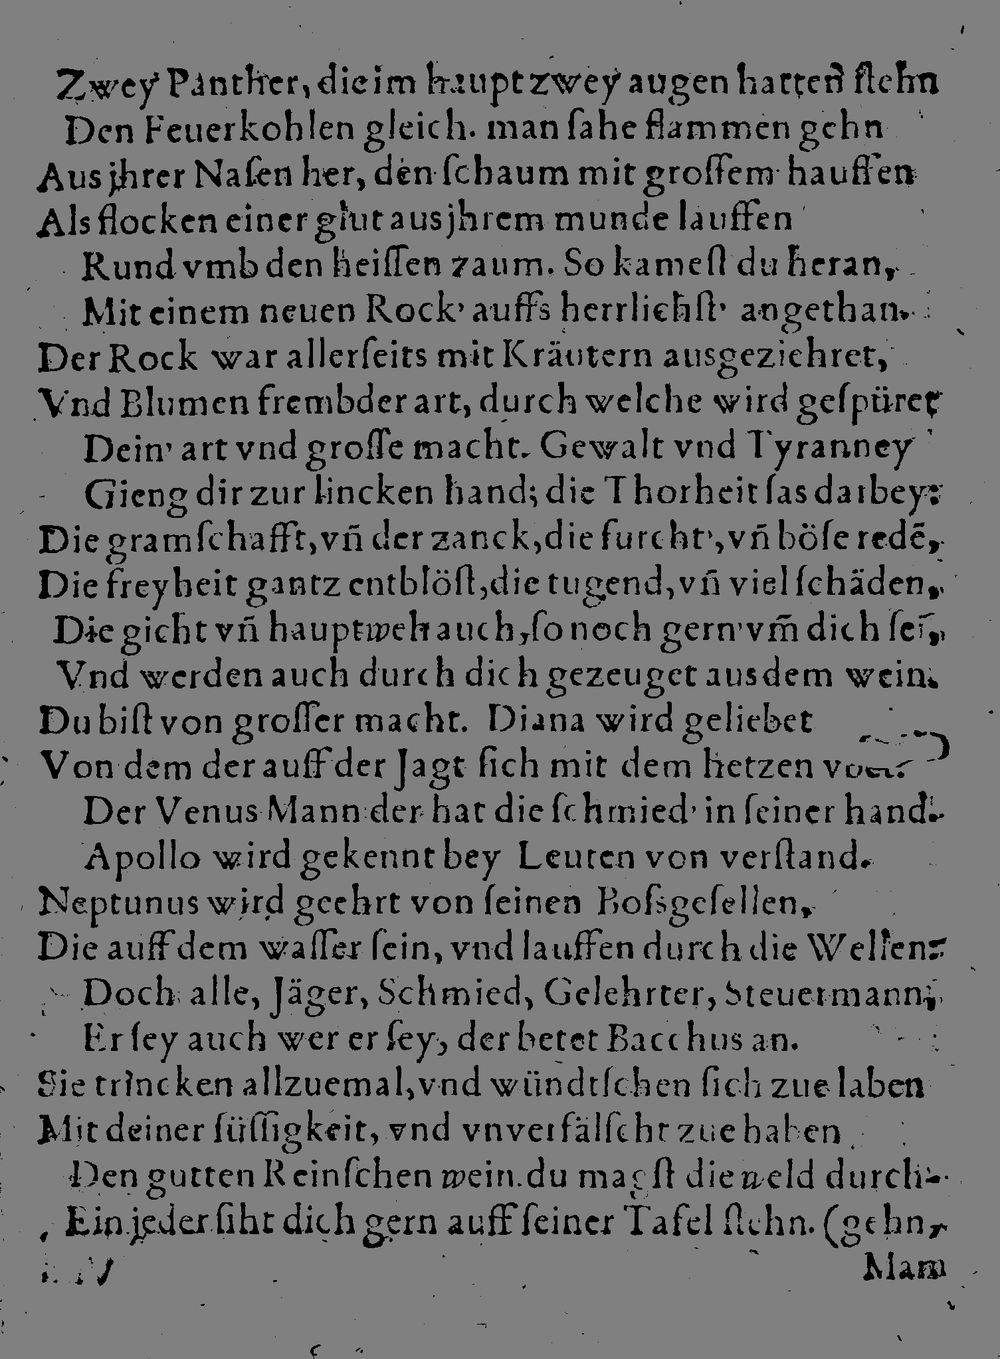 Zwey Panther, die im haupt zwey augen hatten ſtehn
Den Feuerkohlen gleich. man ſahe flammen gehn
Aus jhrer Naſen her, den ſchaum mit groſſem hauffen
Als flocken einer glut aus jhrem munde lauffen
Rund vmb den heiſſen zaum. So kameſt du heran,
Mit einem neuen Rock’ auffs herrlichſt’ angethan.
Der Rock war allerſeits mit Kräutern ausgeziehret,
Vnd Blumen frembder art, durch welche wird geſpüret
Dein’ art vnd groſſe macht. Gewalt vnd Tyranney
Gieng dir zur lincken hand; die Thorheit ſas darbey:
Die gramſchafft, vñ der zanck, die furcht’, vñ böſe redẽ,
Die freyheit gantz entblöſt, die tugend, vñ viel ſchäden,
Die gicht vñ hauptweh auch, ſo noch gern’ vm̃ dich ſei᷈,
Vnd werden auch durch dich gezeuget aus dem wein.
Du biſt von groſſer macht. Diana wird geliebet
Von dem der auff der Jagt ſich mit dem hetzen
Der Venus Mann der hat die ſchmied’ in ſeiner hand.
Apollo wird gekennt bey Leuten von verſtand.
Neptunus wird geehrt von ſeinen Boſsgeſellen,
Die auff dem waſſer ſein, vnd lauffen durch die Wellen:
Doch alle, Jäger, Schmied, Gelehrter, Steuermann,
Er ſey auch wer er ſey, der betet Bacchus an.
Sie trincken allzuemal, vnd wündtſchen ſich zue laben
Mit deiner ſüſſigkeit, vnd vnverfälſcht zue haben
Den gutten Reinſchen wein. du magſt die weld durch-
Ein jeder ſiht dich gern auff ſeiner Tafel ſtehn. (gehn,
Mam